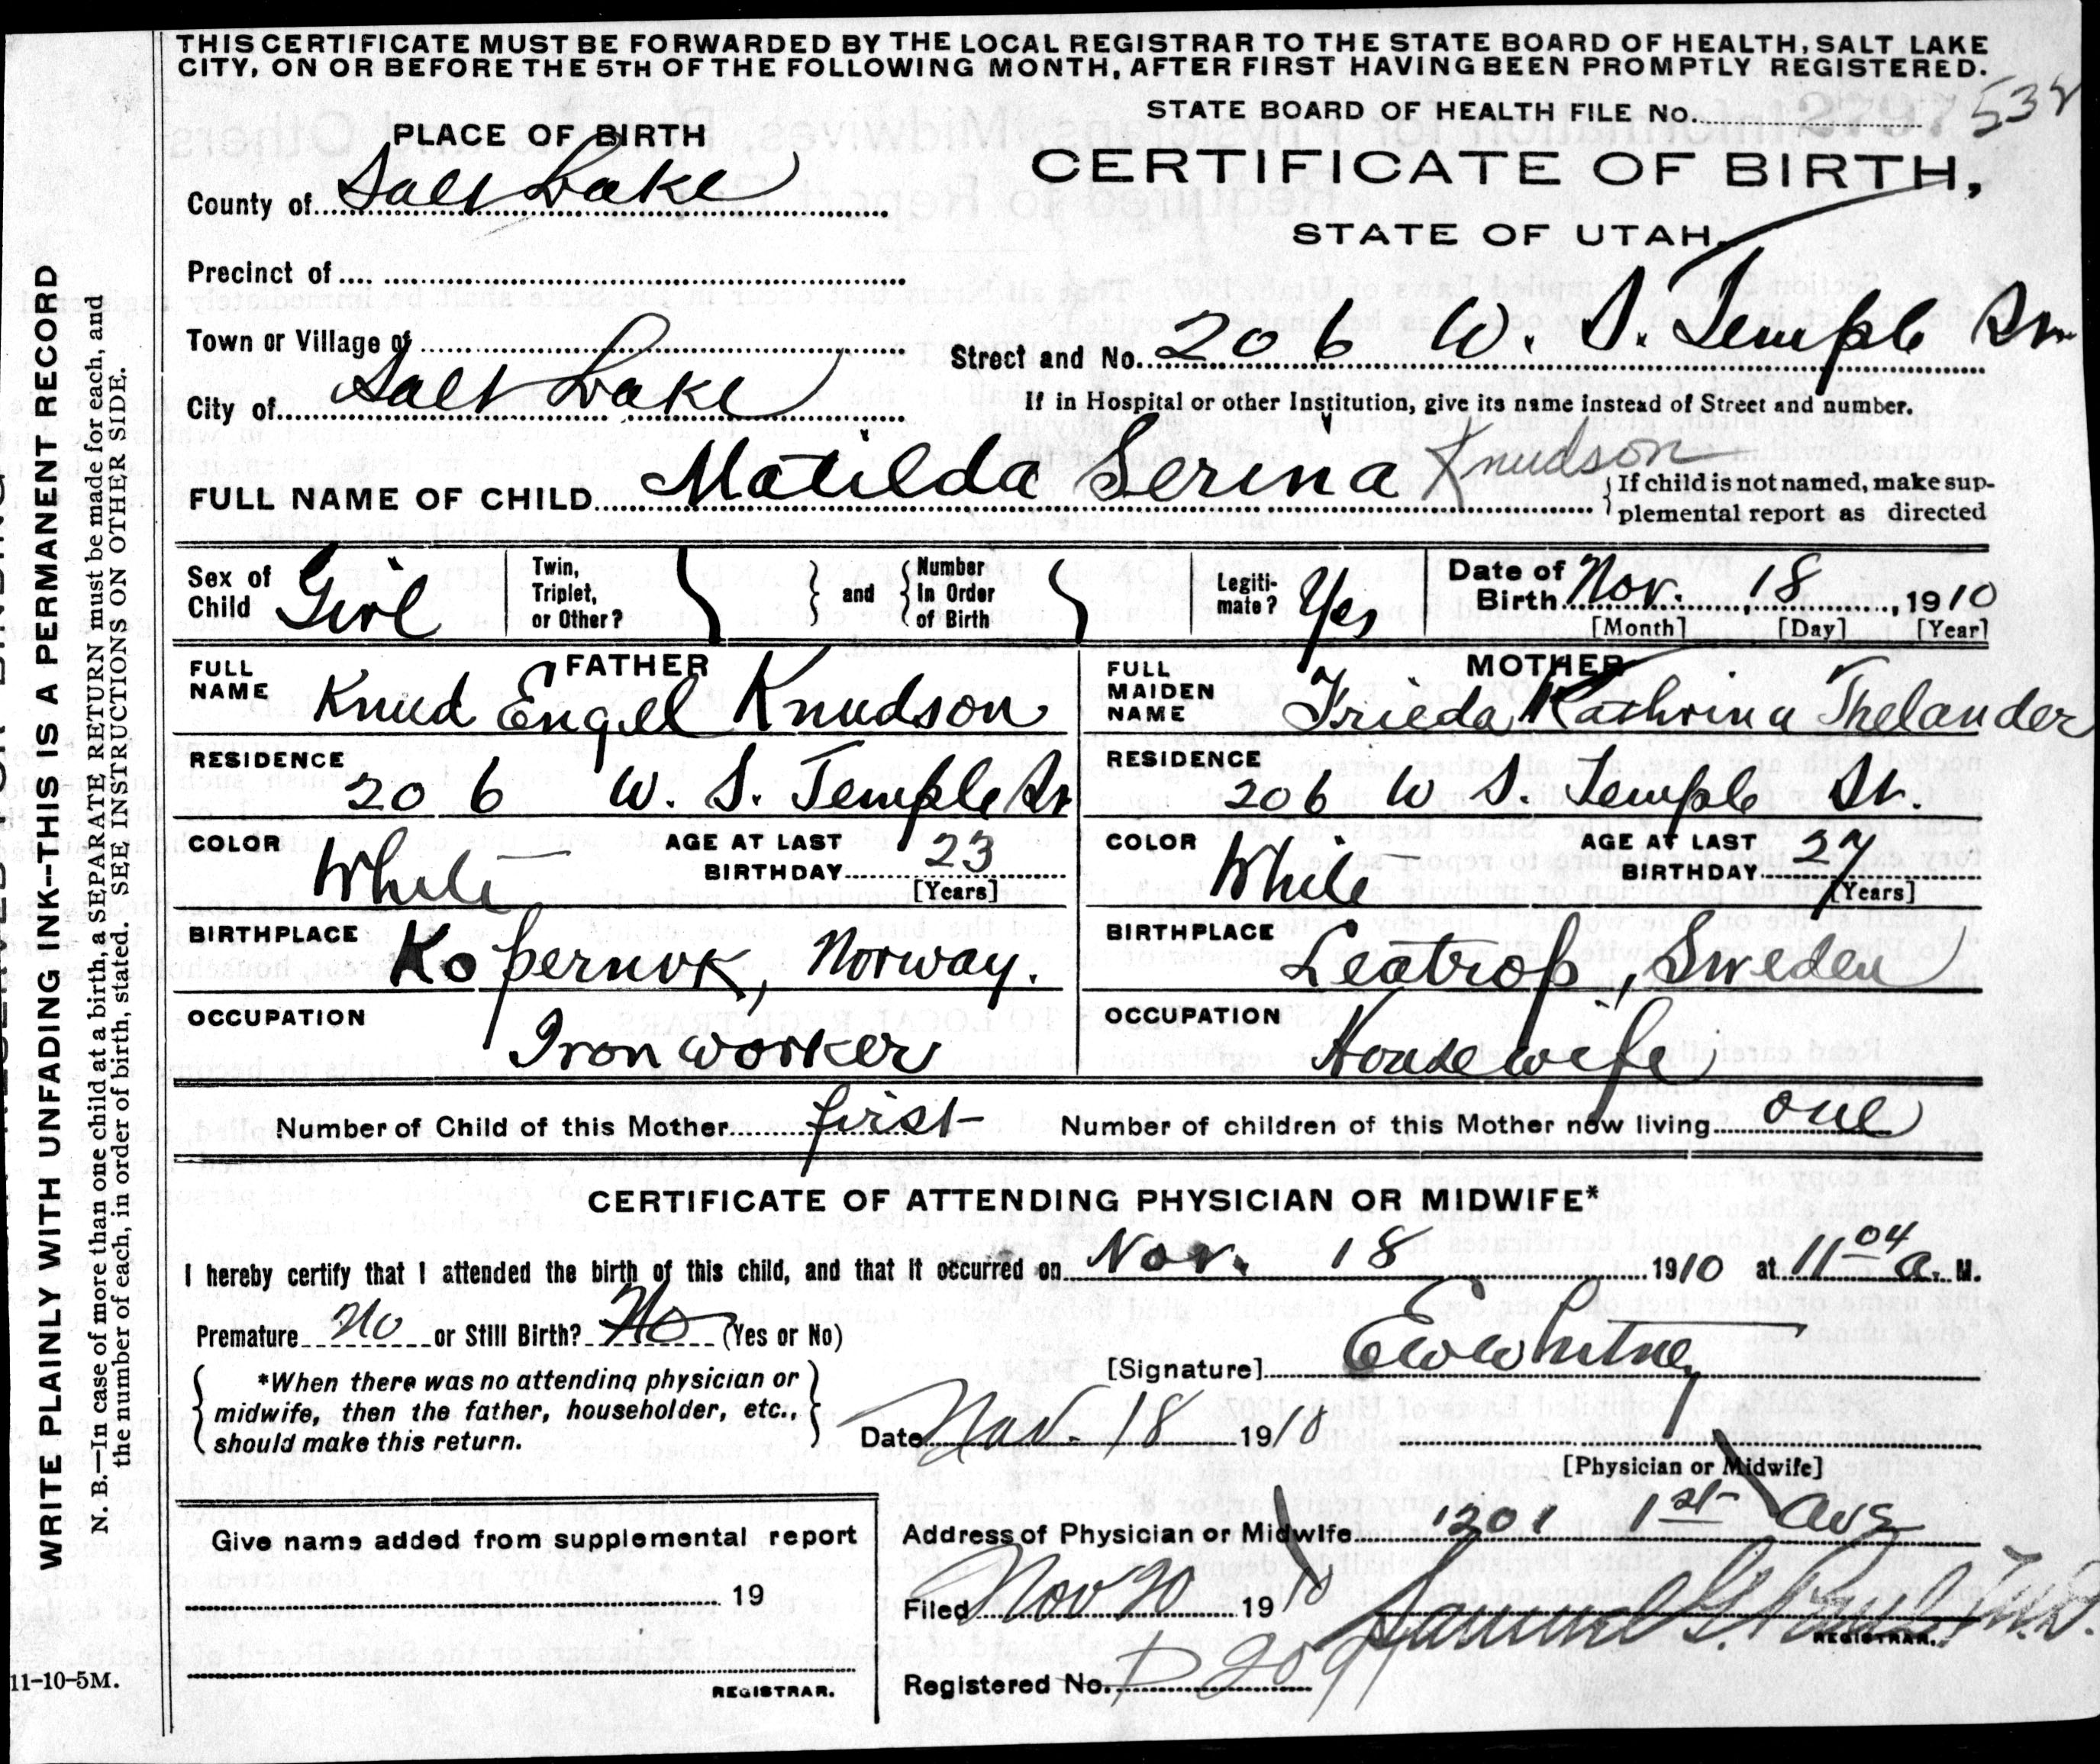 THIS CERTIFICATE MUST BE FORWARDED BY THE LOCAL REGISTRAR TO THE STATE BOARD OF HEALTH, SALT LAKE
CITY, ON OR BEFORE THE 5TH OF THE FOLLOWING MONTH, AFTER FIRST HAVING BEEN PROMPTLY REGISTERED.
STATE BOARD OF HEALTH FILE No. 2797 532
PLACE OF BIRTH
CERTIFICATE OF BIRTH,
County of Salt Lake
STATE OF UTAH.
Precinct of
Town or Village of
Street and No. 206 W. S. Temple St
City of Salt Lake
If in Hospital or other Institution, give its name instead of Street and number.
FULL NAME OF CHILD Matilda Serina Knudson
If child is not named, make sup-
plemental report as directed
Sex of Child Girl
Twin, Triplet, or Other?
and
Number In Order of Birth
Legiti-
mate? Yes
Date of Birth Nov. 18, 1910
[Month] [Day] [Year]
FATHER
FULL NAME Knud Engel Knudson
MOTHER
FULL MAIDEN NAME Frieda Kathrina Thelander
RESIDENCE 206 W. S. Temple St
RESIDENCE 206 W S. Temple St.
COLOR White AGE AT LAST BIRTHDAY 23 [Years]
COLOR White AGE AT LAST BIRTHDAY 27 [Years]
BIRTHPLACE Kopervik, Norway.
BIRTHPLACE Leatrop, Sweden
OCCUPATION Iron worker
OCCUPATION Housewife
Number of Child of this Mother first Number of children of this Mother now living one
CERTIFICATE OF ATTENDING PHYSICIAN OR MIDWIFE*
I hereby certify that I attended the birth of this child, and that it occurred on Nov. 18 1910 at 11 04 a. M.
Premature No or Still Birth? No (Yes or No)
[Signature] E W Whitney
*When there was no attending physician or
midwife, then the father, householder, etc.,
should make this return.
Date Nov. 18 1910
[Physician or Midwife]
Give name added from supplemental report
19
REGISTRAR.
Address of Physician or Midwife 1301 1st Ave
Filed Nov 20 1910 Samuel G. Paul M.D.
REGISTRAR.
Registered No. D 209
11-10-5M.
WRITE PLAINLY WITH UNFADING INK--THIS IS A PERMANENT RECORD
N. B.—In case of more than one child at a birth, a SEPARATE RETURN must be made for each, and
the number of each, in order of birth, stated. SEE INSTRUCTIONS ON OTHER SIDE.